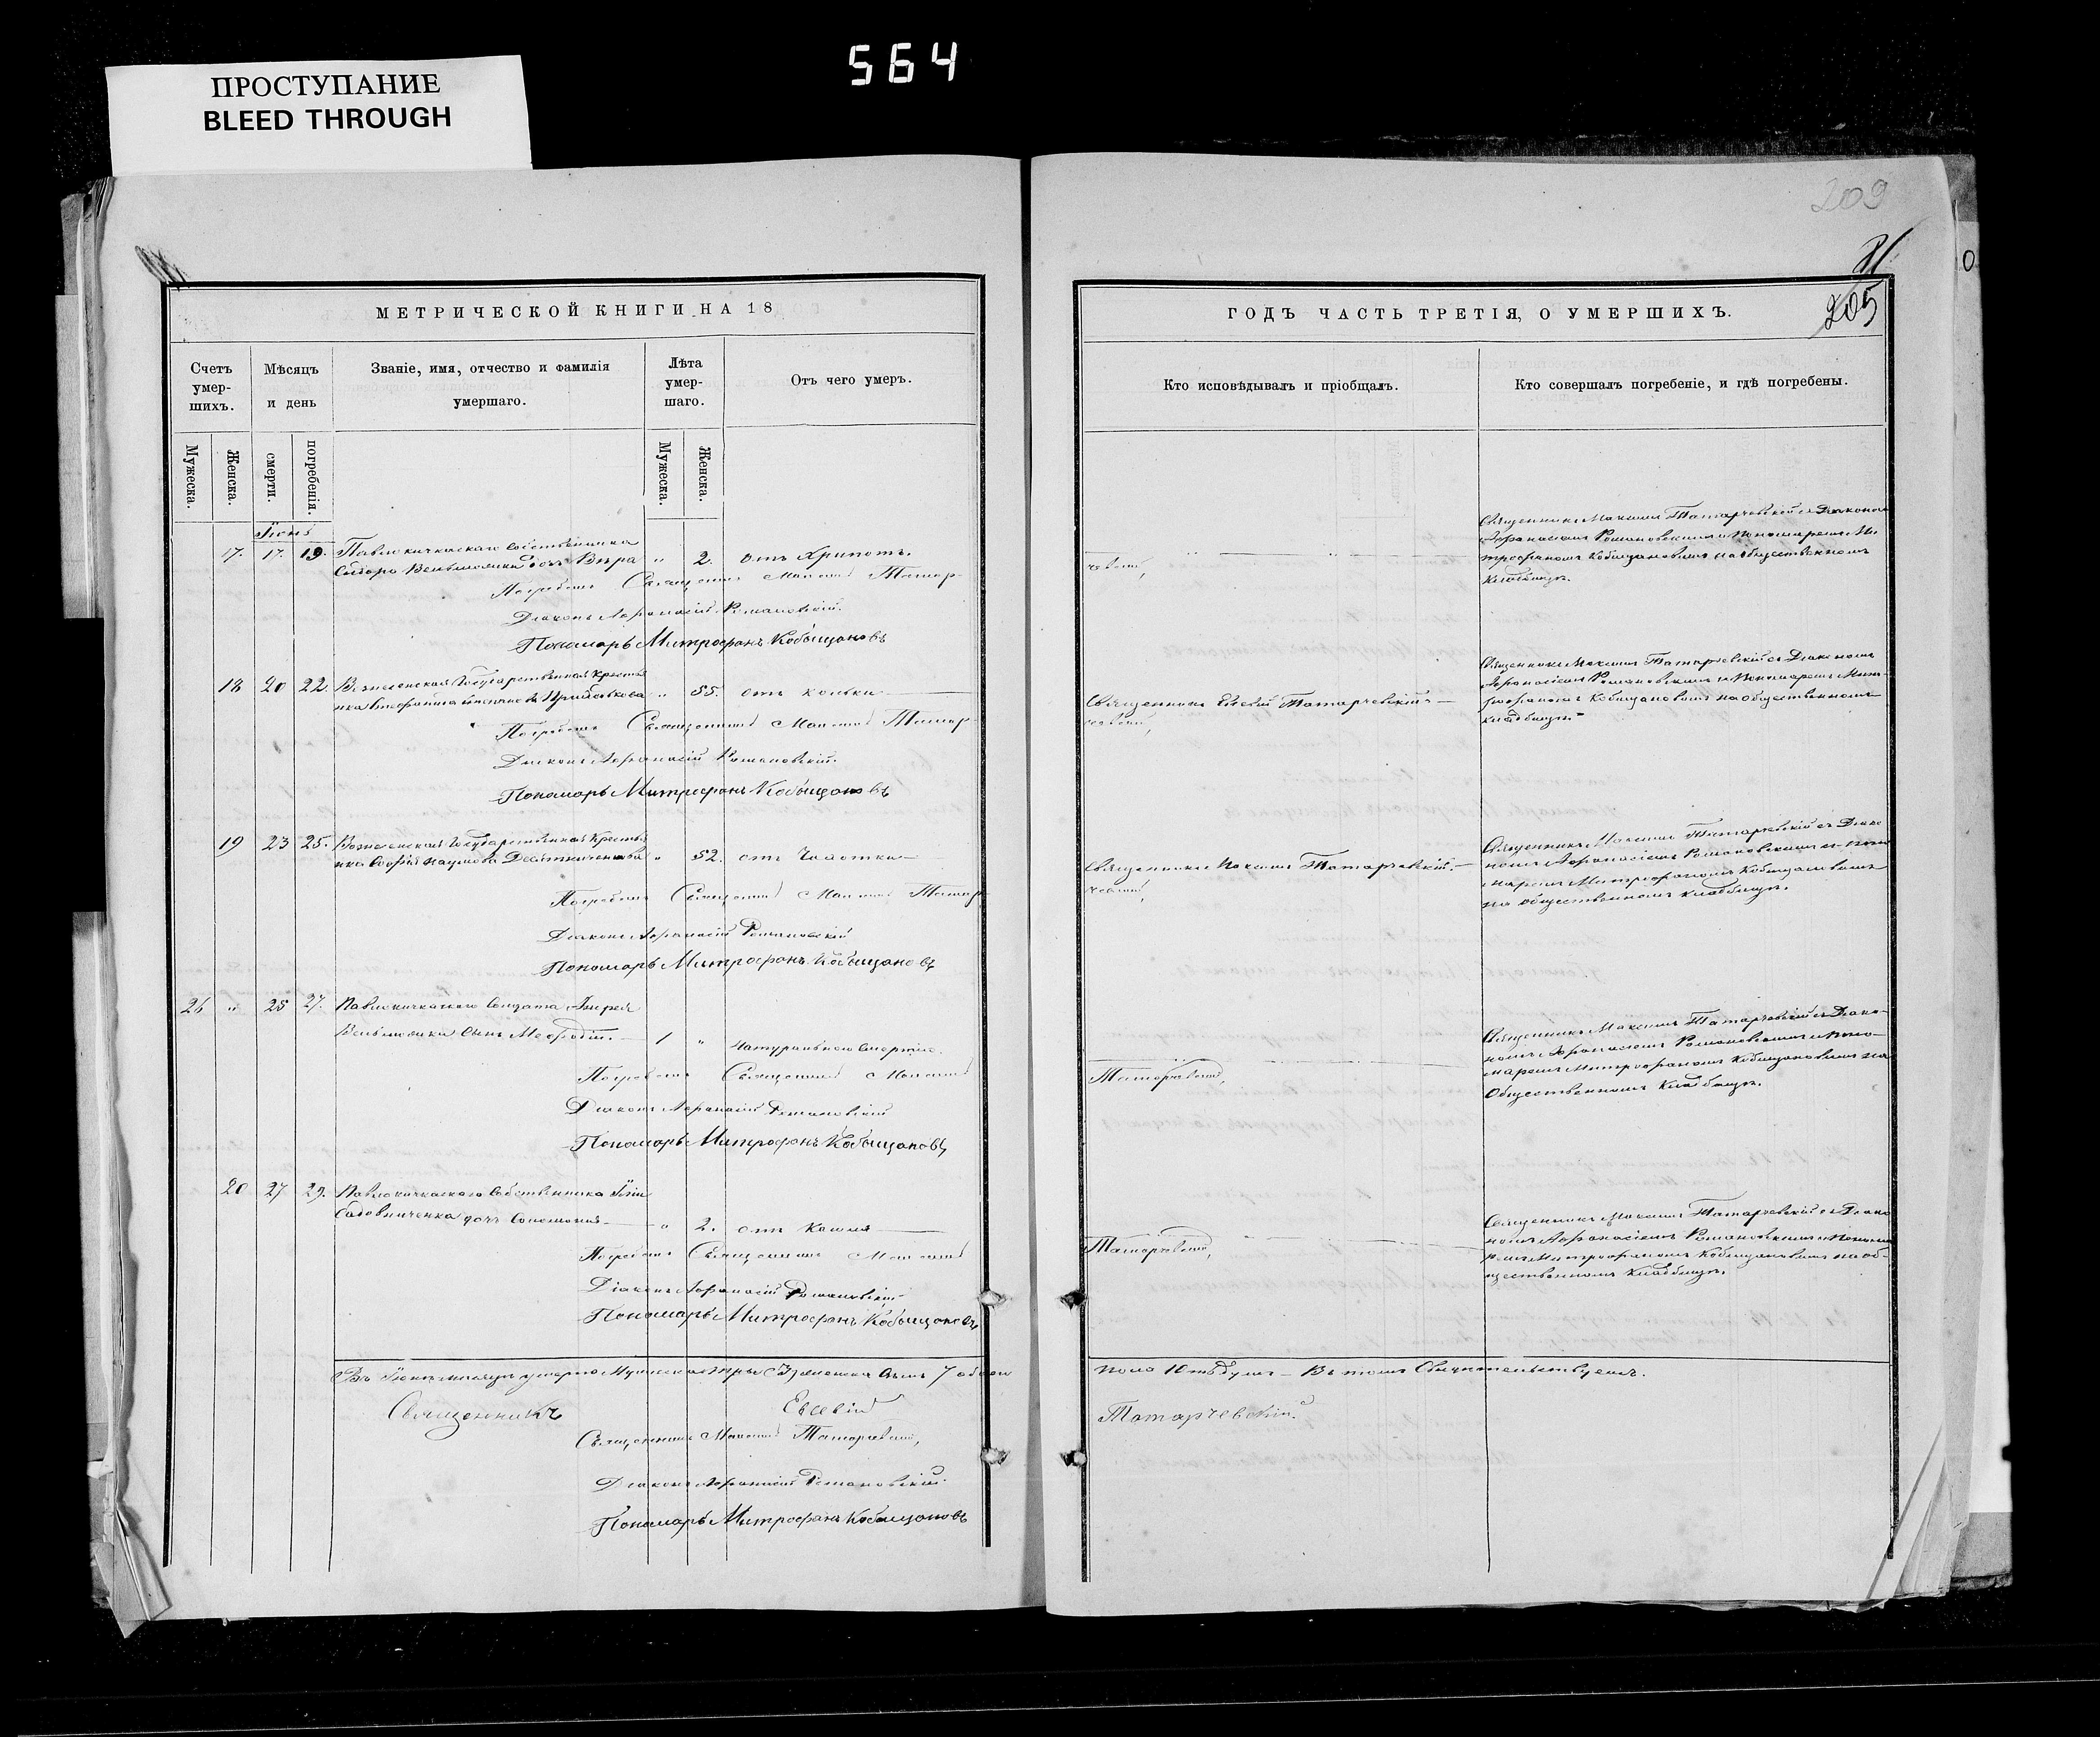 564
ПРОСТУПАНИЕ
BLEED THROUGH
209
205
МЕТРИЧЕСКОЙ КНИГИ НА 18
Счетъ умер-
шихъ.
Мѣсяцъ
и день
Званіе, имя, отчество и фамилія
умершаго.
Лѣта
умер-
шаго.
Отъ чего умеръ.
Мужеска.
Женска.
смерти.
погребенія.
Мужеска.
Женска.
Іюнь
17. 17. 19. Павлокичкаскаго собственника
дочь Вѣра " 2. отъ Хрипотъ.
Погребалъ Священникъ Максимъ Татар-
Діаконъ Афанасій Романовскій.
Пономарь Митрофанъ Кобыщановъ
18 20 22. Вознесенская Государственная Крестья
нка " 55. отъ кольки
Погребалъ Священникъ Максимъ Татар
Діаконъ Афанасій Романовскій.
Пономарь Митрофанъ Кобыщановъ
19 23 25. Вознесенская Государственная Крестья
нка Софія Наумова " 52. отъ Чахотки
Погребалъ Священникъ Максимъ Татар
Діаконъ Афанасій Романовскій
Пономарь Митрофанъ Кобыщановъ
26 " 25 27. Павлокичкаскаго Солдата Андрея
сынъ Мефодій. 1 " Натуральною смертію.
Погребалъ Священникъ Максимъ
Діаконъ Афанасій Романовскій
Пономарь Митрофанъ Кобыщановъ
20 27 29. Павлокичкаскаго Собственника
Садовниченка дочь Соломонія " 2. отъ Кашля
Погребалъ Священникъ Максимъ
Діаконъ Афанасій Романовскій
Пономарь Митрофанъ Кобыщановъ
Въ Іюнѣ мѣсяцѣ умерло Мужеска три 3 Женска семь 7 обоего
Священникъ Евсевій
Священникъ Максимъ Татарчевскій,
Діаконъ Афанасій Романовскій.
Пономарь Митрофанъ Кобыщановъ
ГОДЪ ЧАСТЬ ТРЕТІЯ, О УМЕРШИХЪ.
Кто исповѣдывалъ и пріобщалъ.
Кто совершалъ погребеніе, и гдѣ погребены.
чевскій,
Священникъ Максимъ Татарчевскій съ Діакономъ
Афанасіемъ Романовскимъ и Пономаремъ Ми
трофаномъ Кобыщановымъ на общественномъ
кладбищѣ.
Священникъ Евсевій Татарчевскій
чевскій,
Священникъ Максимъ Татарчевскій съ Діакономъ
Афанасіемъ Романовскимъ и Пономаремъ Мит-
рофаномъ Кобыщановымъ на общественномъ
кладбищѣ
Священникъ Максимъ Татарчевскій.
чевскій,
Священникъ Максимъ Татарчевскій съ Діако
номъ Афанасіемъ Романовскимъ и поно
маремъ Митрофаномъ Кобыщановымъ
на общественномъ кладбищѣ.
Татарчевскій,
Священникъ Максимъ Татарчевскій съ Діако-
номъ Афанасіемъ Романовскимъ и Поно-
маремъ Митрофаномъ Кобыщановымъ на
Общественномъ Кладбищѣ.
Татарчевскій,
Священникъ Максимъ Татарчевскій съ Діако
номъ Афанасіемъ Романовскимъ и Понома
ремъ Митрофаномъ Кобыщановымъ на об-
щественномъ Кладбищѣ.
пола 10ть душъ – Въ томъ Свидѣтельствуемъ.
Татарчевскій.